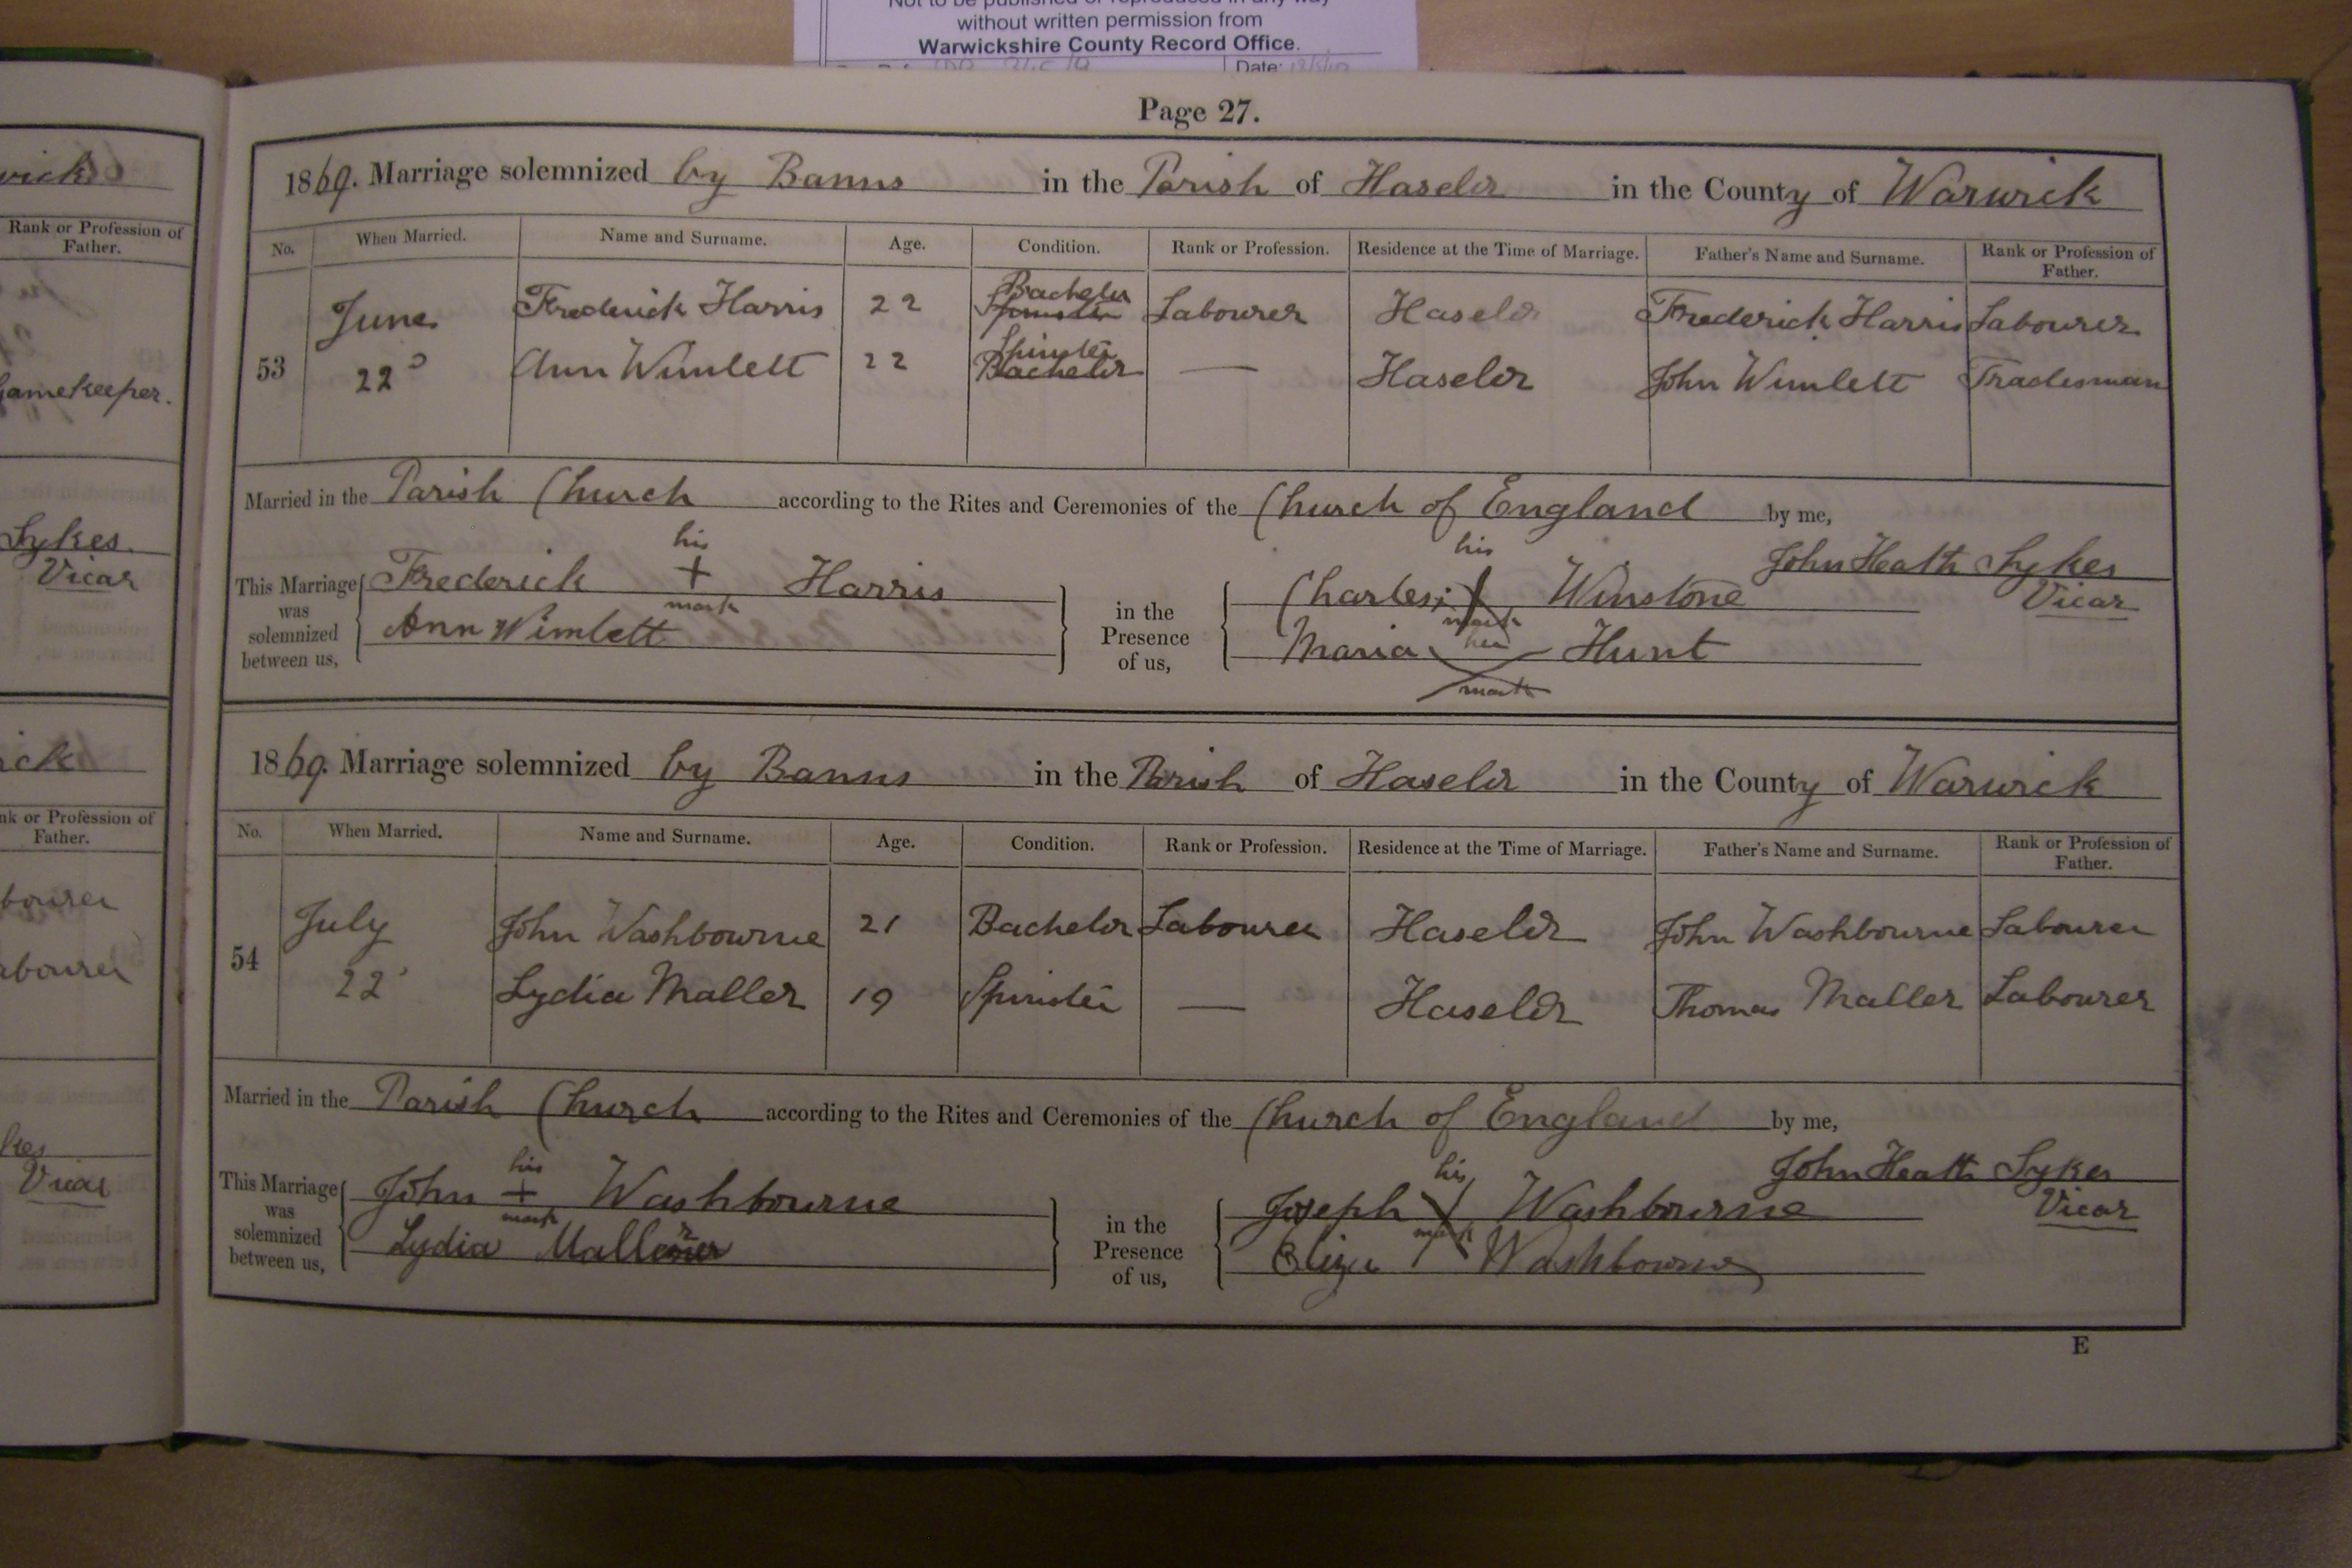 Not to be published or reproduced in any way
without written permission from
Warwickshire County Record Office.
Date:
Page 27.
1869. Marriage solemnized by Banns in the Parish of Haselor in the County of Warwick
No. When Married. Name and Surname. Age. Condition. Rank or Profession. Residence at the Time of Marriage. Father's Name and Surname. Rank or Profession of Father.
Bachelor
June Frederick Harris 22 Spinster Labourer Haselor Frederick Harris Labourer
Spinster
53 22 Ann Wimlett 22 Bachelor — Haselor John Wimlett Tradesman
Married in the Parish Church according to the Rites and Ceremonies of the Church of England by me,
John Heath Sykes
Vicar
This Marriage was solemnized between us,
his
Frederick + Harris
mark
Ann Wimlett
in the Presence of us,
his
Charles X Winstone
mark
her
Maria X Hunt
mark
1869. Marriage solemnized by Banns in the Parish of Haselor in the County of Warwick
No. When Married. Name and Surname. Age. Condition. Rank or Profession. Residence at the Time of Marriage. Father's Name and Surname. Rank or Profession of Father.
July John Washbourne 21 Bachelor Labourer Haselor John Washbourne Labourer
54 22 Lydia Maller 19 Spinster — Haselor Thomas Maller Labourer
Married in the Parish Church according to the Rites and Ceremonies of the Church of England by me,
John Heath Sykes
Vicar
This Marriage was solemnized between us,
his
John + Washbourne
mark
Lydia
in the Presence of us,
his
Joseph X Washbourne
mark
Eliza Washbourne
E
Rank or Profession of
Father.
Gamekeeper.
Sykes.
Vicar
Father.
Vicar